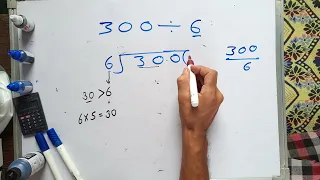 300 ÷ 6
6)300(
300/6
30 > 6
6 × 5 = 30